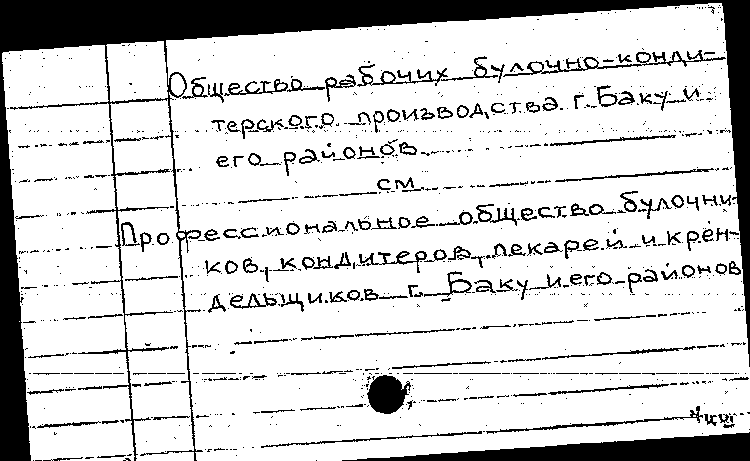 Общество рабочих булочно-конди-
терского производства г. Баку и
его районов.
см.
Профессиональное общество булочни-
ков, кондитеров, пекарей и крен-
дельщиков г. Баку и его районов